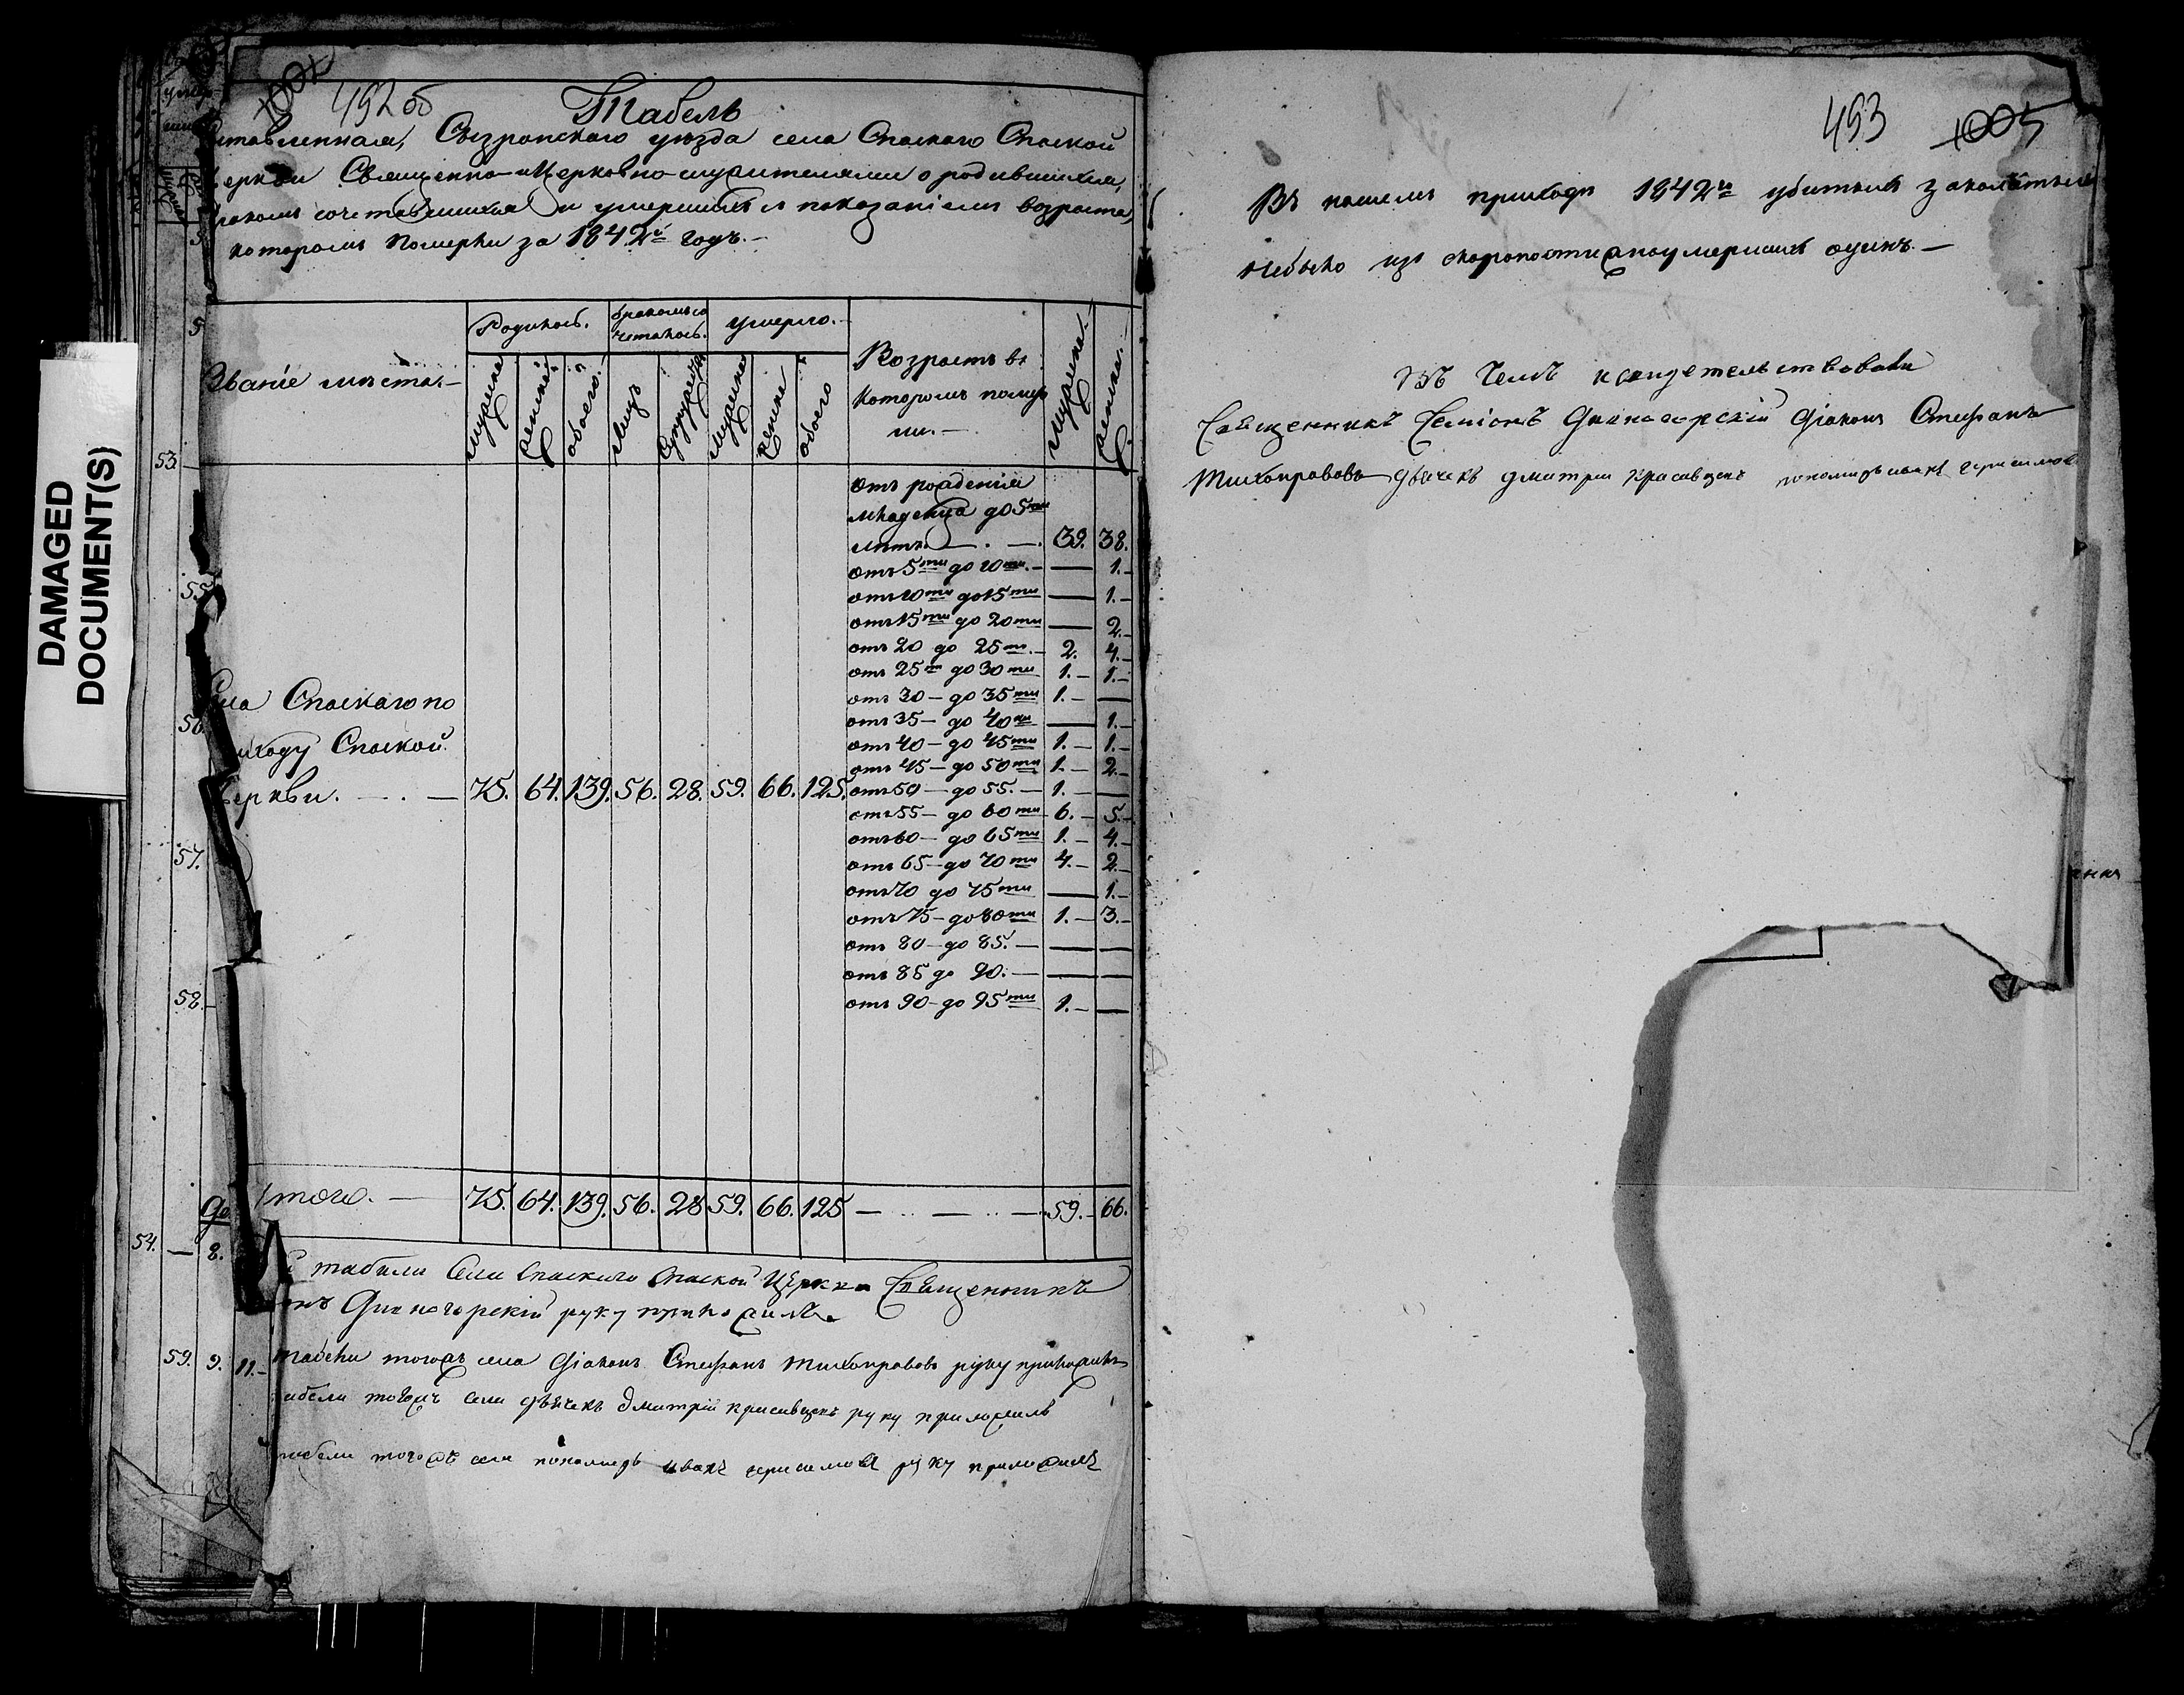 DAMAGED
DOCUMENT(S)
492 об
Табель
ставленная, Сызранскаго уѣзда села Спаскаго Спаской
церкви Священно-церковно-служителями о родившихся,
бракомъ сочетавшихся и умершихъ с показаніемъ возраста,
котораго померли за 1842й годъ.—
Званіе мѣста.—
Родилось.
бракомъ со
четалось.
умерло.—
Возрастъ въ
которомъ помер
ли.—
мужска
женска
обоего
лицъ
супружествъ
мужска
женска
обоего
мужска.
женска.
отъ рожденія
младенца до 5ти
лѣтъ — . — . 39. 38.
отъ 5ти до 10ти.— — 1.—
отъ 10ти до 15ти — 1.—
отъ 15ти до 20ти — 2.—
отъ 20 до 25ти.— 2. 4.—
отъ 25ти до 30ти 1.— 1.—
отъ 30— до 35ти 1.— —
отъ 35— до 40ка — 1.—
отъ 40— до 45ти 1.— 1.—
отъ 45— до 50ти 1.— 2.—
села Спаскаго по
приходу Спаской
церкви. — . — 75. 64. 139. 56. 28. 59. 66. 125. отъ 50— до 55.— 1.— —
отъ 55— до 60ти 6.— 5.—
отъ 60— до 65ти 1.— 4.—
отъ 65— до 70ти 4.— 2.—
отъ 70 до 75ти — 1.—
отъ 75— до 80ти 1.— 3.—
отъ 80— до 85.— — —
отъ 85 до 90.— — —
отъ 90— до 95ти 1.— —
Итого.— 75. 64. 139. 56. 28 59. 66. 125 — .. — .. — 59.— 66.
табели села Спаскаго Спаской церкви Священникъ
Дивногорскій руку приложилъ
табели тогожъ села Діаконъ Стефанъ Тихонравовъ руку приложилъ
табели тогожъ села дьячекъ Дмитрій Красавцевъ руку приложилъ
табели тогожъ села пономарь Иванъ Герасимовъ руку приложилъ
53.
55.
56.
57.
58.
54. — 8.
59. 9. 11.—
493 1005
Въ нашемъ приходѣ 1842го убитыхъ заколатыхъ
небыло из скоропостижноумершихъ одинъ.—
Въ Чемъ и свидетельствовали
Священникъ Семіонъ Дивногорскій Діаконъ Стефанъ
Тихонравовъ дьячекъ Дмитрій Красавцевъ пономарь иванъ герасимовъ